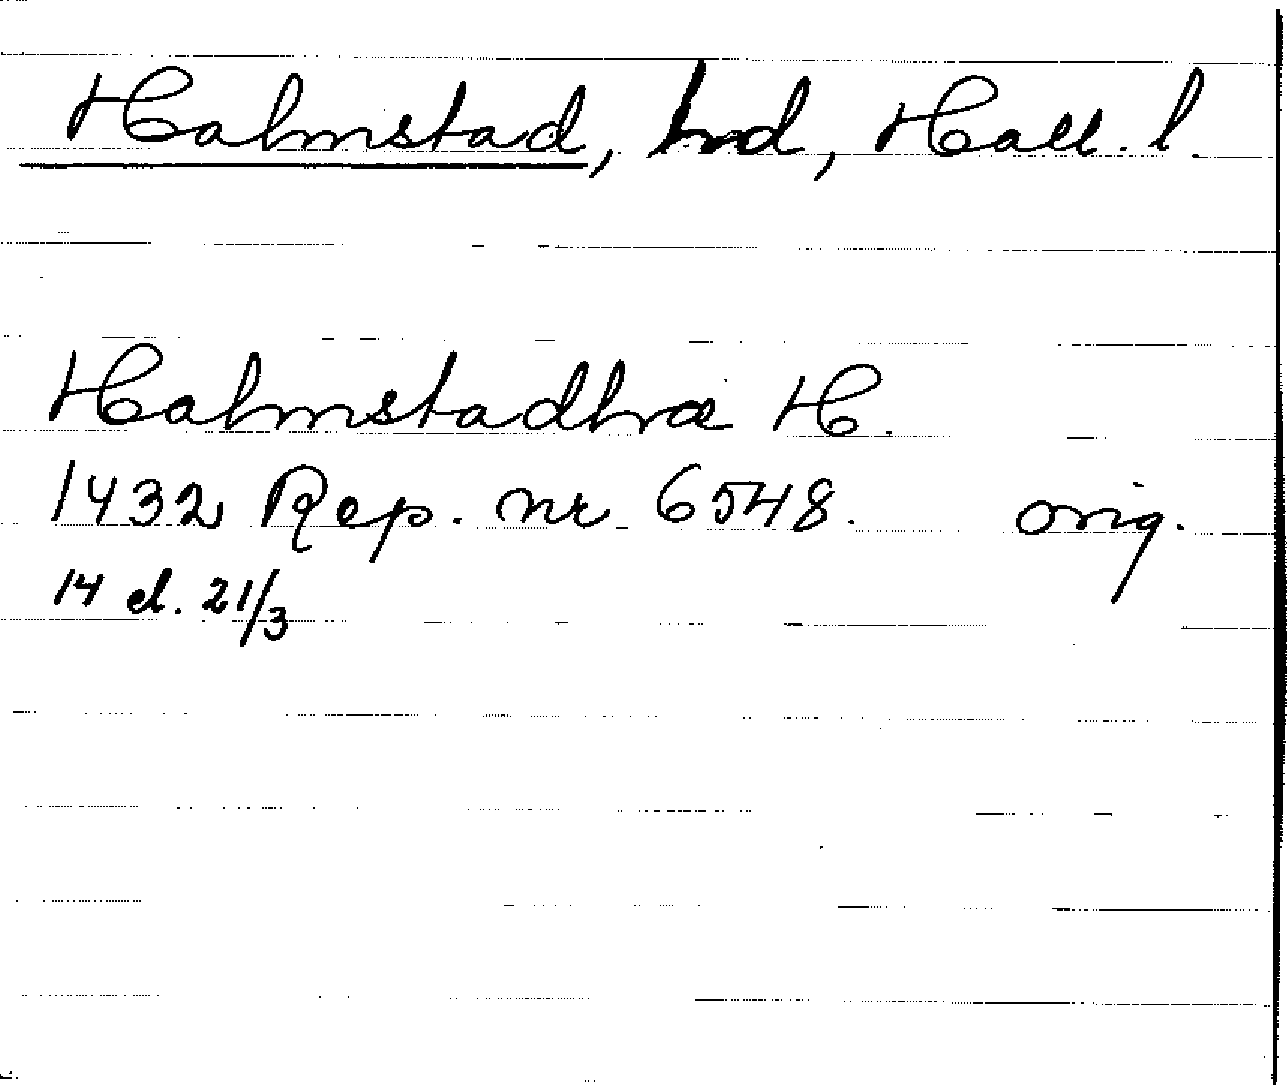 Halmstad, hd, Hall. l.
Halmstadhræ H.
1432 Rep. nr 6548. orig.
14 el. 21/3